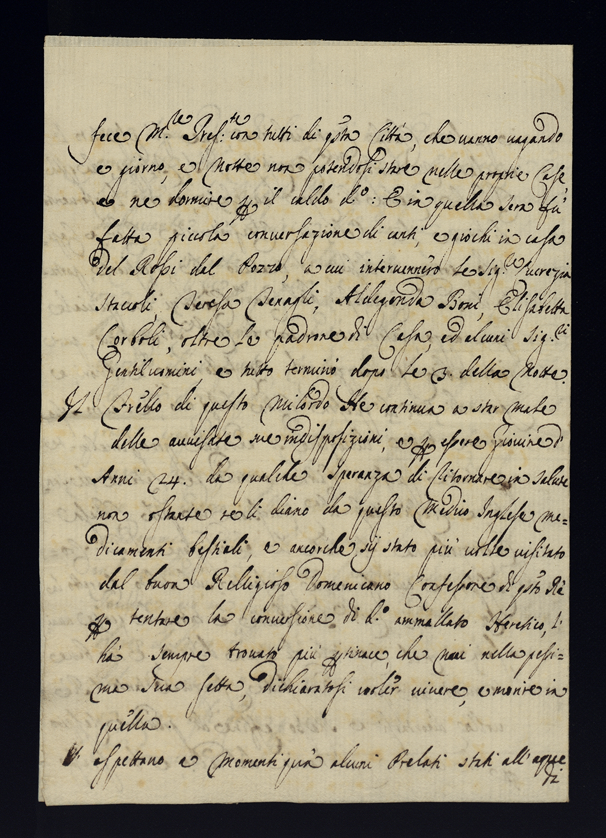 fece M.le Pres.te con tutti di q.sta Città, che vanno vagando
e giorno, e Notte non potendosi stare nelle proprie Case,
e ne dormire p il caldo d.o: E in quella sera fù
fatta piccola conversazione di canti, e giochi in casa
del Rossi dal Pozzo, a cui intervennero le Sig.re Lucrezia
Staccoli, Teresa Benagli, Aldegonda Boni, Elisabetta
Corboli, oltre le padrone di Casa, ed alcuni Sig.ri
Gentiluomini e tutto terminò dopo le 3. della Notte.
Il Frello di questo Milordo He continua a star male
delle avvisate sue indisposizioni, e p essere Giovine d
Anni 24. da qualche speranza di ritornare in salute
non ostante se li diano da questo Medico Inglese me=
dicamenti bestiali, e ancorche sij stato più volte visitato
dal buon Religioso Domenicano Confessore di q.sto Rè
p tentare la conversione di d.o ammallato Heretico, l'
ha sempre trovato più ptinace, che mai nella pessi=
ma sua setta, dichiaratosi voler vivere, e morire in
quella.
Si aspettano a Momenti quà alcuni Prelati stati all'acque
di